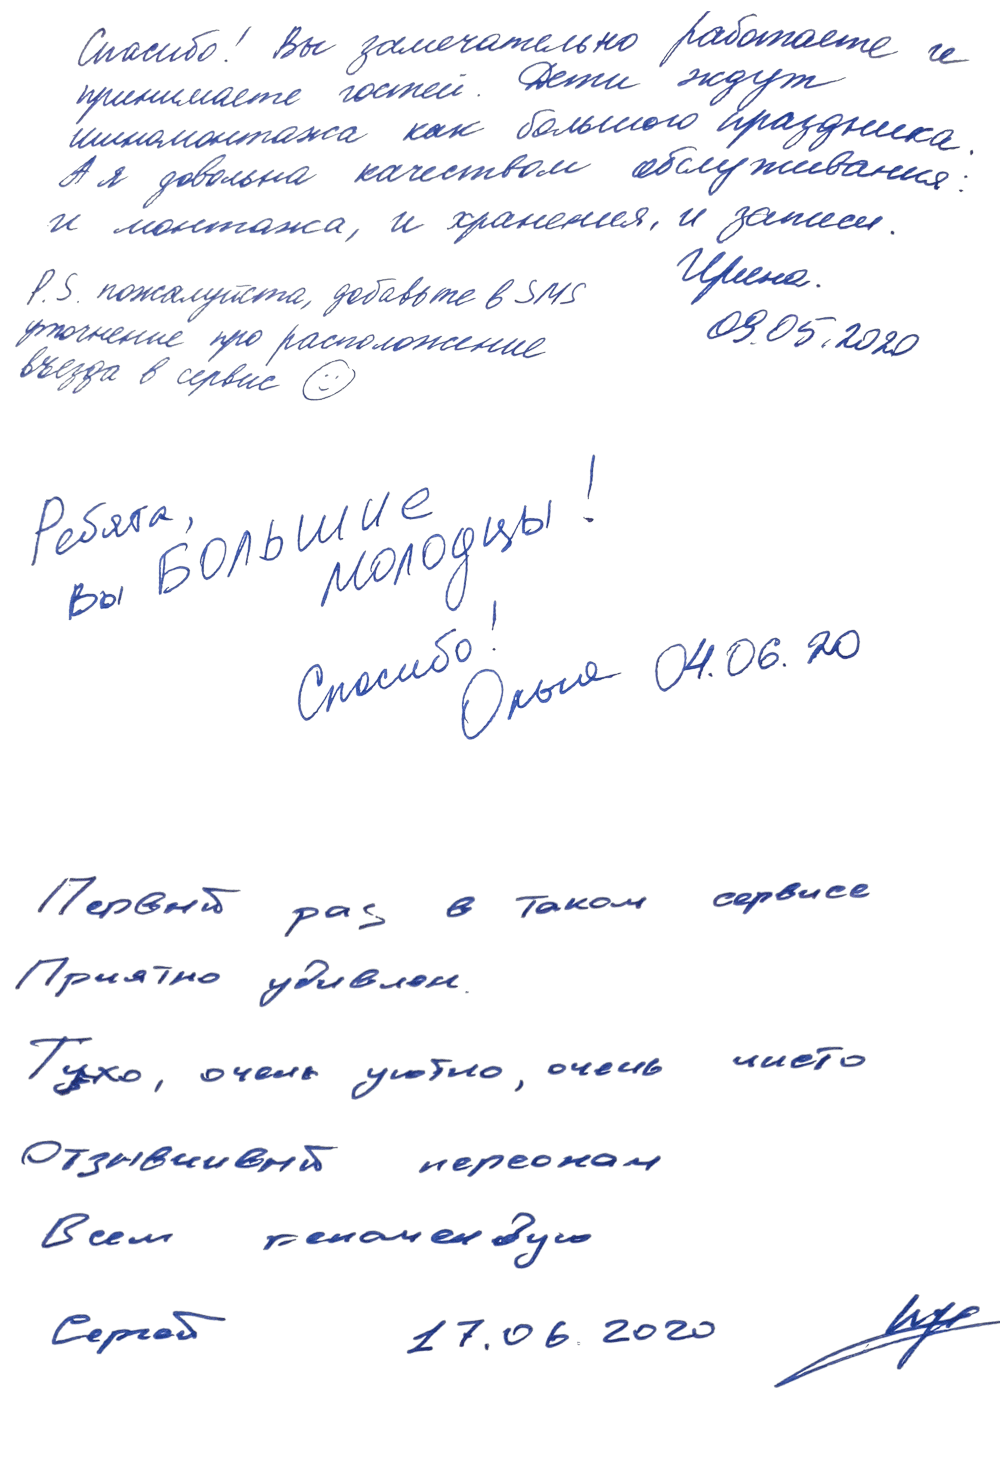 Спасибо! Вы замечательно работаете и
принимаете гостей. Дети ждут
шиномонтажа как большого праздника.
А я довольна качеством обслуживания:
и монтажа, и хранения, и записи.
Ирина.
09.05.2020
P.S. пожалуйста, добавьте в SMS
уточнение про расположение
въезда в сервис
Ребята,
вы БОЛЬШИЕ
молодцы!
Спасибо!
Ольга 04.06.20
Первый раз в таком сервисе
Приятно удивлен.
Тихо, очень уютно, очень чисто
Отзывчивый персонал
Всем рекомендую
Сергей 17.06.2020